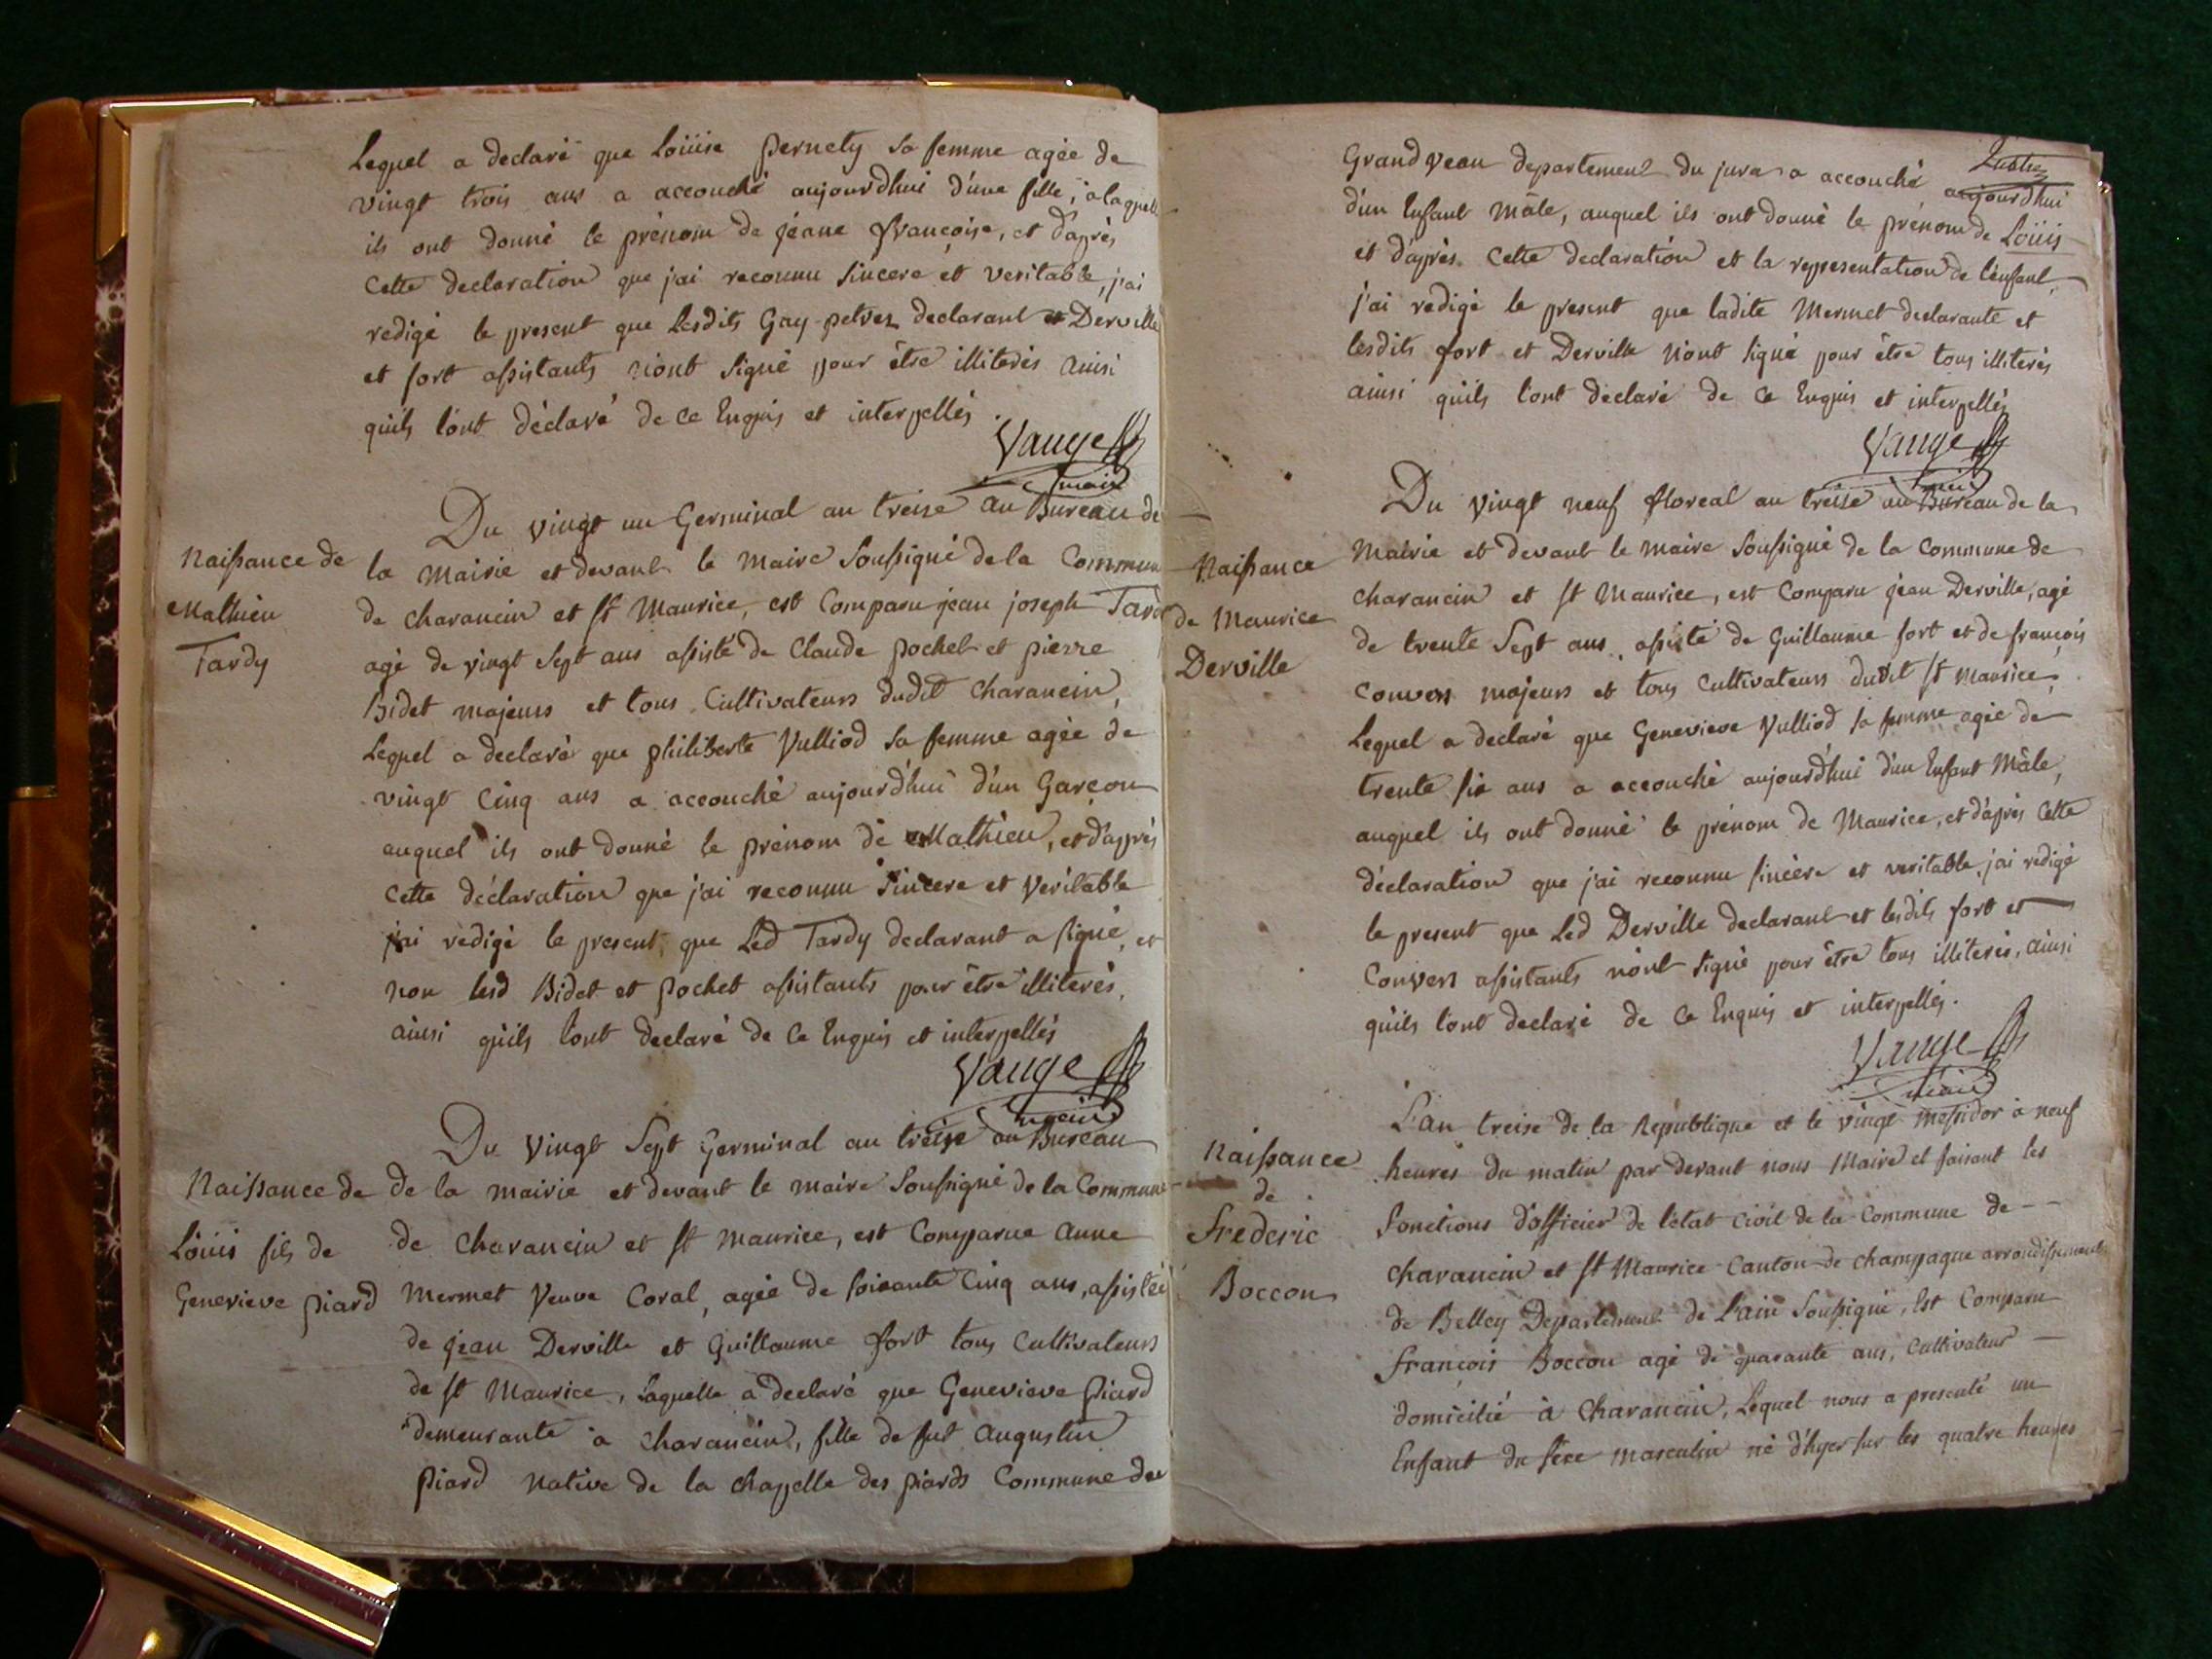 Lequel a declaré que Loüise pernety sa femme agée de
vingt trois ans a accouché aujourdhui d'une fille, a laquelle
ils ont donné le prénom de jéane françoise, et d'après
Cette declaration que j'ai reconnu Sincere et veritable, j'ai
redigé le present que Lesdits Gay-pelvez declarant et Derville
et fort assistants n'ont Signé pour être illiterés ainsi
qu'ils l'ont déclaré de ce Enquis et interpellés.
Vauge
maire
Naissance de
Mathieu
Tardy
Du vingt un Germinal an treize au Bureau de
la Mairie et devant le maire Soussigné de la Commune
de charancin et St Maurice, est Comparu jean joseph Tardy
agé de vingt Sept ans assisté de Claude pochet et pierre
Bidet majeurs et tous Cultivateurs dudit charancin,
Lequel a declaré que philiberte Vulliod sa femme agée de
vingt Cinq ans a accouché aujourd'hui d'un Garçon
auquel ils ont donné le prénom de Mathieu, et d'après
Cette déclaration que j'ai reconnu Sincere et Veritable
j'ai redigé le present, que Led Tardy declarant a signé, et
non lesd Bidet et pochet assistants pour être illiterés,
ainsi qu'ils l'ont declaré de ce Enquis et interpellés
Vauge
maire
Naissance de
Loüis fils de
Genevieve piard
Du Vingt Sept Germinal an treize au Bureau
de la mairie et devant le maire Soussigné de la Commune
de Charancin et St maurice, est Comparue Anne
Mermet Veuve Coral, agée de soixante Cinq ans, assistée
de jean Derville et Guillaume fort tous Cultivateurs
de St Maurice, Laquelle a declaré que Genevieve Piard
demeurante a charancin, fille de fut Augustin
piard native de la chapelle des piards Commune de
Grand veau departement du jura a accouché aujourdhui
d'un Enfant Mâle, auquel ils ont donné le prénom de Loüis
et d'après Cette declaration et la representation de l'enfant,
j'ai redigé le present que ladite Mermet declarante et
lesdits fort et Derville N'ont signé pour être tous illiterés
ainsi qu'ils l'ont declaré de ce Enquis et interpellés
Vauge
maire
Naissance
de Maurice
Derville
Du vingt neuf floreal an treize au Bureau de la
Mairie et devant le maire Soussigné de la Commune de
charancin et St Maurice, est Comparu jean Derville, agé
de trente Sept ans, assisté de Guillaume fort et de françois
Convers majeurs et tous Cultivateurs dudit St maurice,
Lequel a declaré que Genevieve Vulliod sa femme agée de
trente six ans a accouché aujourd'hui d'un Enfant Mâle,
auquel ils ont donné le prénom de Maurice, et d'après Cette
déclaration que j'ai reconnu sincère et veritable, j'ai redigé
le present que Led Derville declarant et lesdits fort et
Convers assistants n'ont signé pour être tous illiterés, ainsi
qu'ils l'ont declaré de ce Enquis et interpellés.
Vauge
maire
Naissance
de
Frederic
Boccon
L'an treize de la République et le vingt Messidor à neuf
heures du matin par devant nous Maire et faisant les
fonctions d'officier de l'état Civil de la Commune de
charancin et St Maurice Canton de champagne arrondissement
de Belley Departement de L'ain Soussigné, Est Comparu
françois Boccon agé de quarante ans, Cultivateur
domicilié à Charancin, Lequel nous a presenté un
Enfant du sexe masculin né d'hyer sur les quatre heures